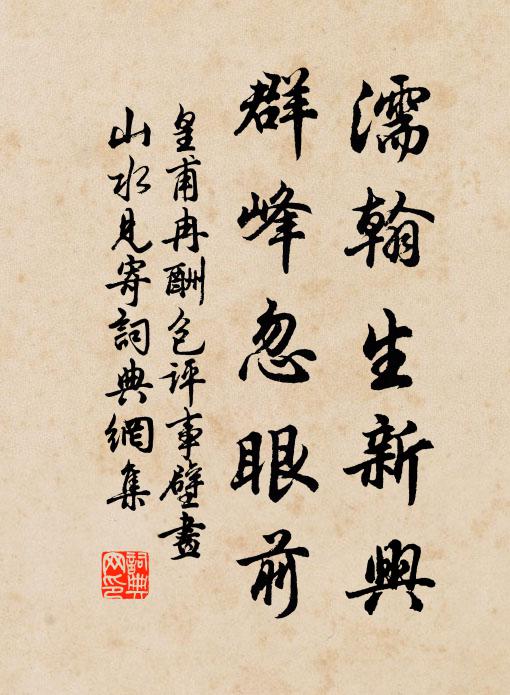 濡翰生新興
群峰忽眼前
皇甫冉酬包評事壁畫
山水見寄詞典網集
詞典
网印